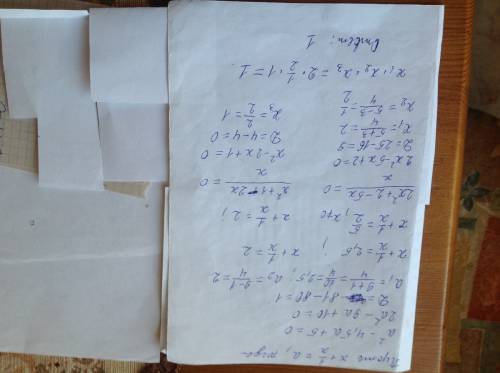 Пусть x + 1/x = a, тогда
a² - 4,5a + 5 = 0
2a² - 9a + 10 = 0
D = 81 - 80 = 1
a₁ = (9+1)/4 = 10/4 = 2,5; a₂ = (9-1)/4 = 2
x + 1/x = 2,5 ; x + 1/x = 2
x + 1/x = 5/2, x≠0 x + 1/x = 2;
(2x² + 2 - 5x)/x = 0 (x² + 1 - 2x)/x = 0
2x² - 5x + 2 = 0 x² - 2x + 1 = 0
D = 25 - 16 = 9 D = 4 - 4 = 0
x₁ = (5+3)/4 = 2 x₃ = 2/2 = 1
x₂ = (5-3)/4 = 1/2
x₁ · x₂ · x₃ = 2 · 1/2 · 1 = 1.
Ответ: 1